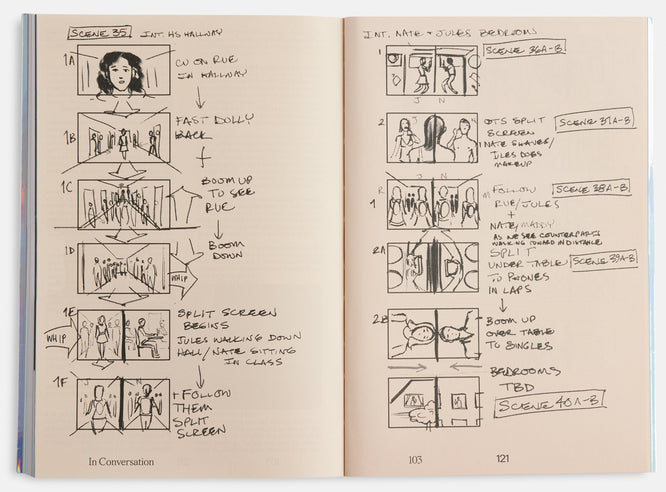 SCENE 35. INT. HS HALLWAY
1A
CU ON RUE
IN HALLWAY
1B
FAST DOLLY
BACK
1C
BOOM UP
TO SEE
RUE
1D
BOOM
DOWN
WHIP
1E
WHIP
SPLIT SCREEN
BEGINS
JULES WALKING DOWN
HALL/NATE SITTING
IN CLASS
1F
J N
+ FOLLOW
THEM
SPLIT
SCREEN
In Conversation
INT. NATE + JULES BEDROOM
1
SCENE 36A-B
J N
2
J N
OTS SPLIT
SCREEN
NATE SHAVES/
JULES DOES
MAKEUP
SCENE 37A-B
J N
1
R
FOLLOW
RUE/JULES
+
NATE/MADDY
AS WE SEE COUNTERPARTS
WALKING TOWARD IN DISTANCE
SCENE 38A-B
2A
SPLIT
UNDER TABLE
TO PHONES
IN LAPS
SCENE 39A-B
2B
BOOM UP
OVER TABLE
TO SINGLES
BEDROOMS
TBD
SCENE 40A-B
103
121